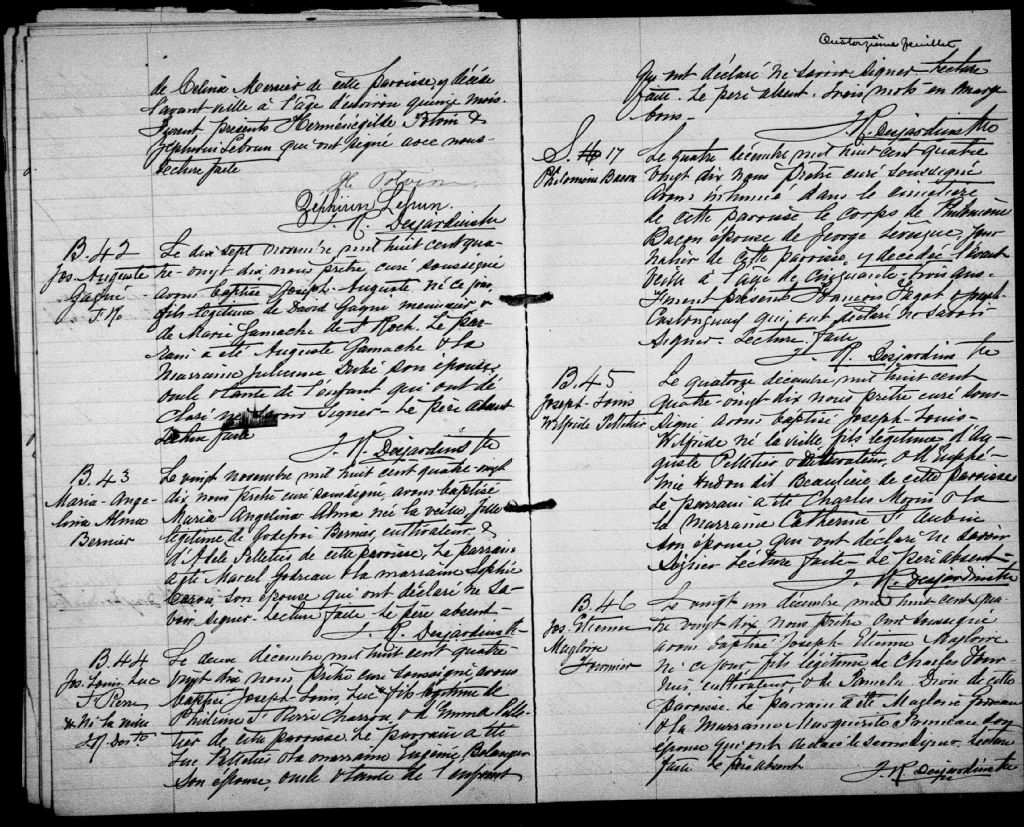 de Celina Mercier de cette paroisse, y décédé
l'avant veille à l'âge d'environ quinze mois.
Furent présents Herménégilde Potvin &
Zephirin Lebrun qui ont signé avec nous-
Lecture faite
H. Potvin
Zephirin Lebrun.
J. R. Desjardins Ptre
B. 42
Jos. Auguste
Gagné
Le dix sept novembre mil huit cent qua-
tre-vingt dix nous prêtre curé soussigné
avons baptisé Joseph-Auguste né ce jour
fils légitime de David Gagné meunier &
de Marie Gamache de St Roch. Le par-
rain a été Auguste Gamache & la
Marraine Julienne Dubé son épouse,
oncle & tante de l'enfant qui ont dé-
claré ne savoir signer- Le père absent
Lecture faite
J. R. Desjardins Ptre
B. 43
Maria-Ange-
lina Alma
Bernier
Le vingt novembre mil huit cent quatre-vingt
dix nous prêtre curé soussigné, avons baptisé
Maria Angelina Alma née la veille, fille
légitime de Godefroi Bernier, cultivateur, &
d'Adèle Pelletier de cette paroisse. Le parrain
a été Marcel Godreau & la marraine Sophie
Caron, son épouse qui ont déclaré ne sa-
voir signer- Lecture faite- Le père absent-
J. R. Desjardins Ptre
B. 44
Jos. Louis Luc
St Pierre
né la veille
Le deux décembre mil huit cent quatre
vingt dix nous prêtre curé soussigné avons
baptisé Joseph Louis Luc fils légitime de
St Pierre Charron, & d'Emma Pelle-
tier de cette paroisse. Le parrain a été
Luc Pelletier & la marraine Eugénie Belanger
son épouse, oncle & tante de l'enfant
Quatorzième feuillet
Qui ont déclaré ne savoir signer- Lecture
faite. Le père absent. trois mots en marge
bons-
J. R. Desjardins Ptre
S. 17
Philomène Bacon
Le quatre décembre mil huit cent quatre
vingt dix nous prêtre curé soussigné
avons inhumé dans le cimetière
de cette paroisse le corps de Philomène
Bacon épouse de George Levesque, jour
nalier de cette paroisse, y décédée l'avant
veille à l'âge de cinquante-trois ans-
Furent présents François Fagot & Joseph
Castonguay qui, ont déclaré ne savoir
signer- Lecture faite
J. R. Desjardins Ptre
B. 45
Joseph-Louis
Wilfride Pelletier
Le quatorze décembre mil huit cent
quatre-vingt dix nous prêtre curé sous-
signé avons baptisé Joseph-Louis-
Wilfride né la veille fils légitime d'Au
guste Pelletier cultivateur, & d'Euphé-
mie Audon dit Beaulieu de cette paroisse
Le parrain a été Charles Morin & la
la marraine Catherine St Aubin
son épouse qui ont déclaré ne savoir
signer Lecture faite- Le père absent-
J. R. Desjardins Ptre
B. 46
Jos. Etienne
Magloire
Fournier
Le vingt un décembre mil huit cent qua
tre vingt dix nous prêtre curé soussigné
avons baptisé Joseph Etienne Magloire
né ce jour fils légitime de Charles Four-
nier, cultivateur, & de Pamela Dion de cette
paroisse. Le parrain a été Magloire
& la marraine Marguerite son
épouse qui ont déclaré ne savoir signer. Lecture
faite Le père absent
J. R. Desjardins Ptre